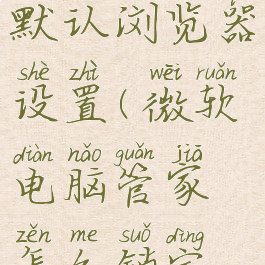 默认浏览器
shè zhì wēi ruǎn
设置(微软
diàn nǎo guǎn jiā
电脑管家
zěn me suǒ dìng
怎么锁定